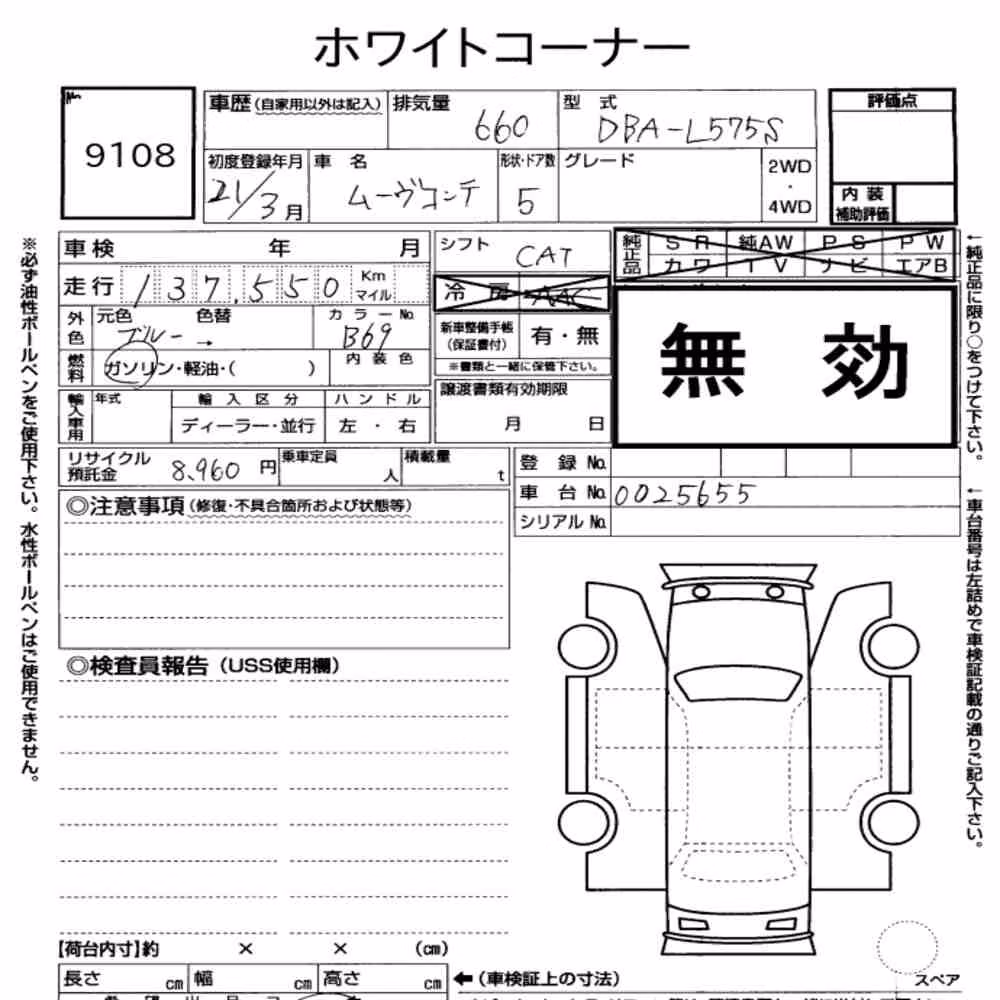 ホワイトコーナー
No.
9108
車歴(自家用以外は記入)
排気量
660
型 式
DBA-L575S
評価点
初度登録年月
21/3月
車 名
ムーヴコンテ
形状・ドア数
5
グレード
2WD
・
4WD
内 装
補助評価
車検 年 月
シフト
CAT
純正品
SR 純AW PS PW
カワ TV ナビ エアB
走行 137,550 Km マイル
冷房 AAC
外色
元色 色替 カラーNo.
ブルー → B69
新車整備手帳
(保証書付)
有・無
※書類と一緒に保管下さい。
無 効
燃料
ガソリン・軽油・( )
内 装 色
譲渡書類有効期限
月 日
輸入車用
年式
輸 入 区 分
ハ ン ド ル
ディーラー・並行
左 ・ 右
リサイクル
預託金
8,960 円
乗車定員
人
積載量
t
登 録 No.
車 台 No. 0025655
シリアル No.
◎注意事項(修復・不具合箇所および状態等)
◎検査員報告(USS使用欄)
【荷台内寸】約 × × (cm)
長さ cm 幅 cm 高さ cm
←(車検証上の寸法)
スペア
※必ず油性ボールペンをご使用下さい。水性ボールペンはご使用できません。
←純正品に限り○をつけて下さい。
←車台番号は左詰めで車検証記載の通りご記入下さい。